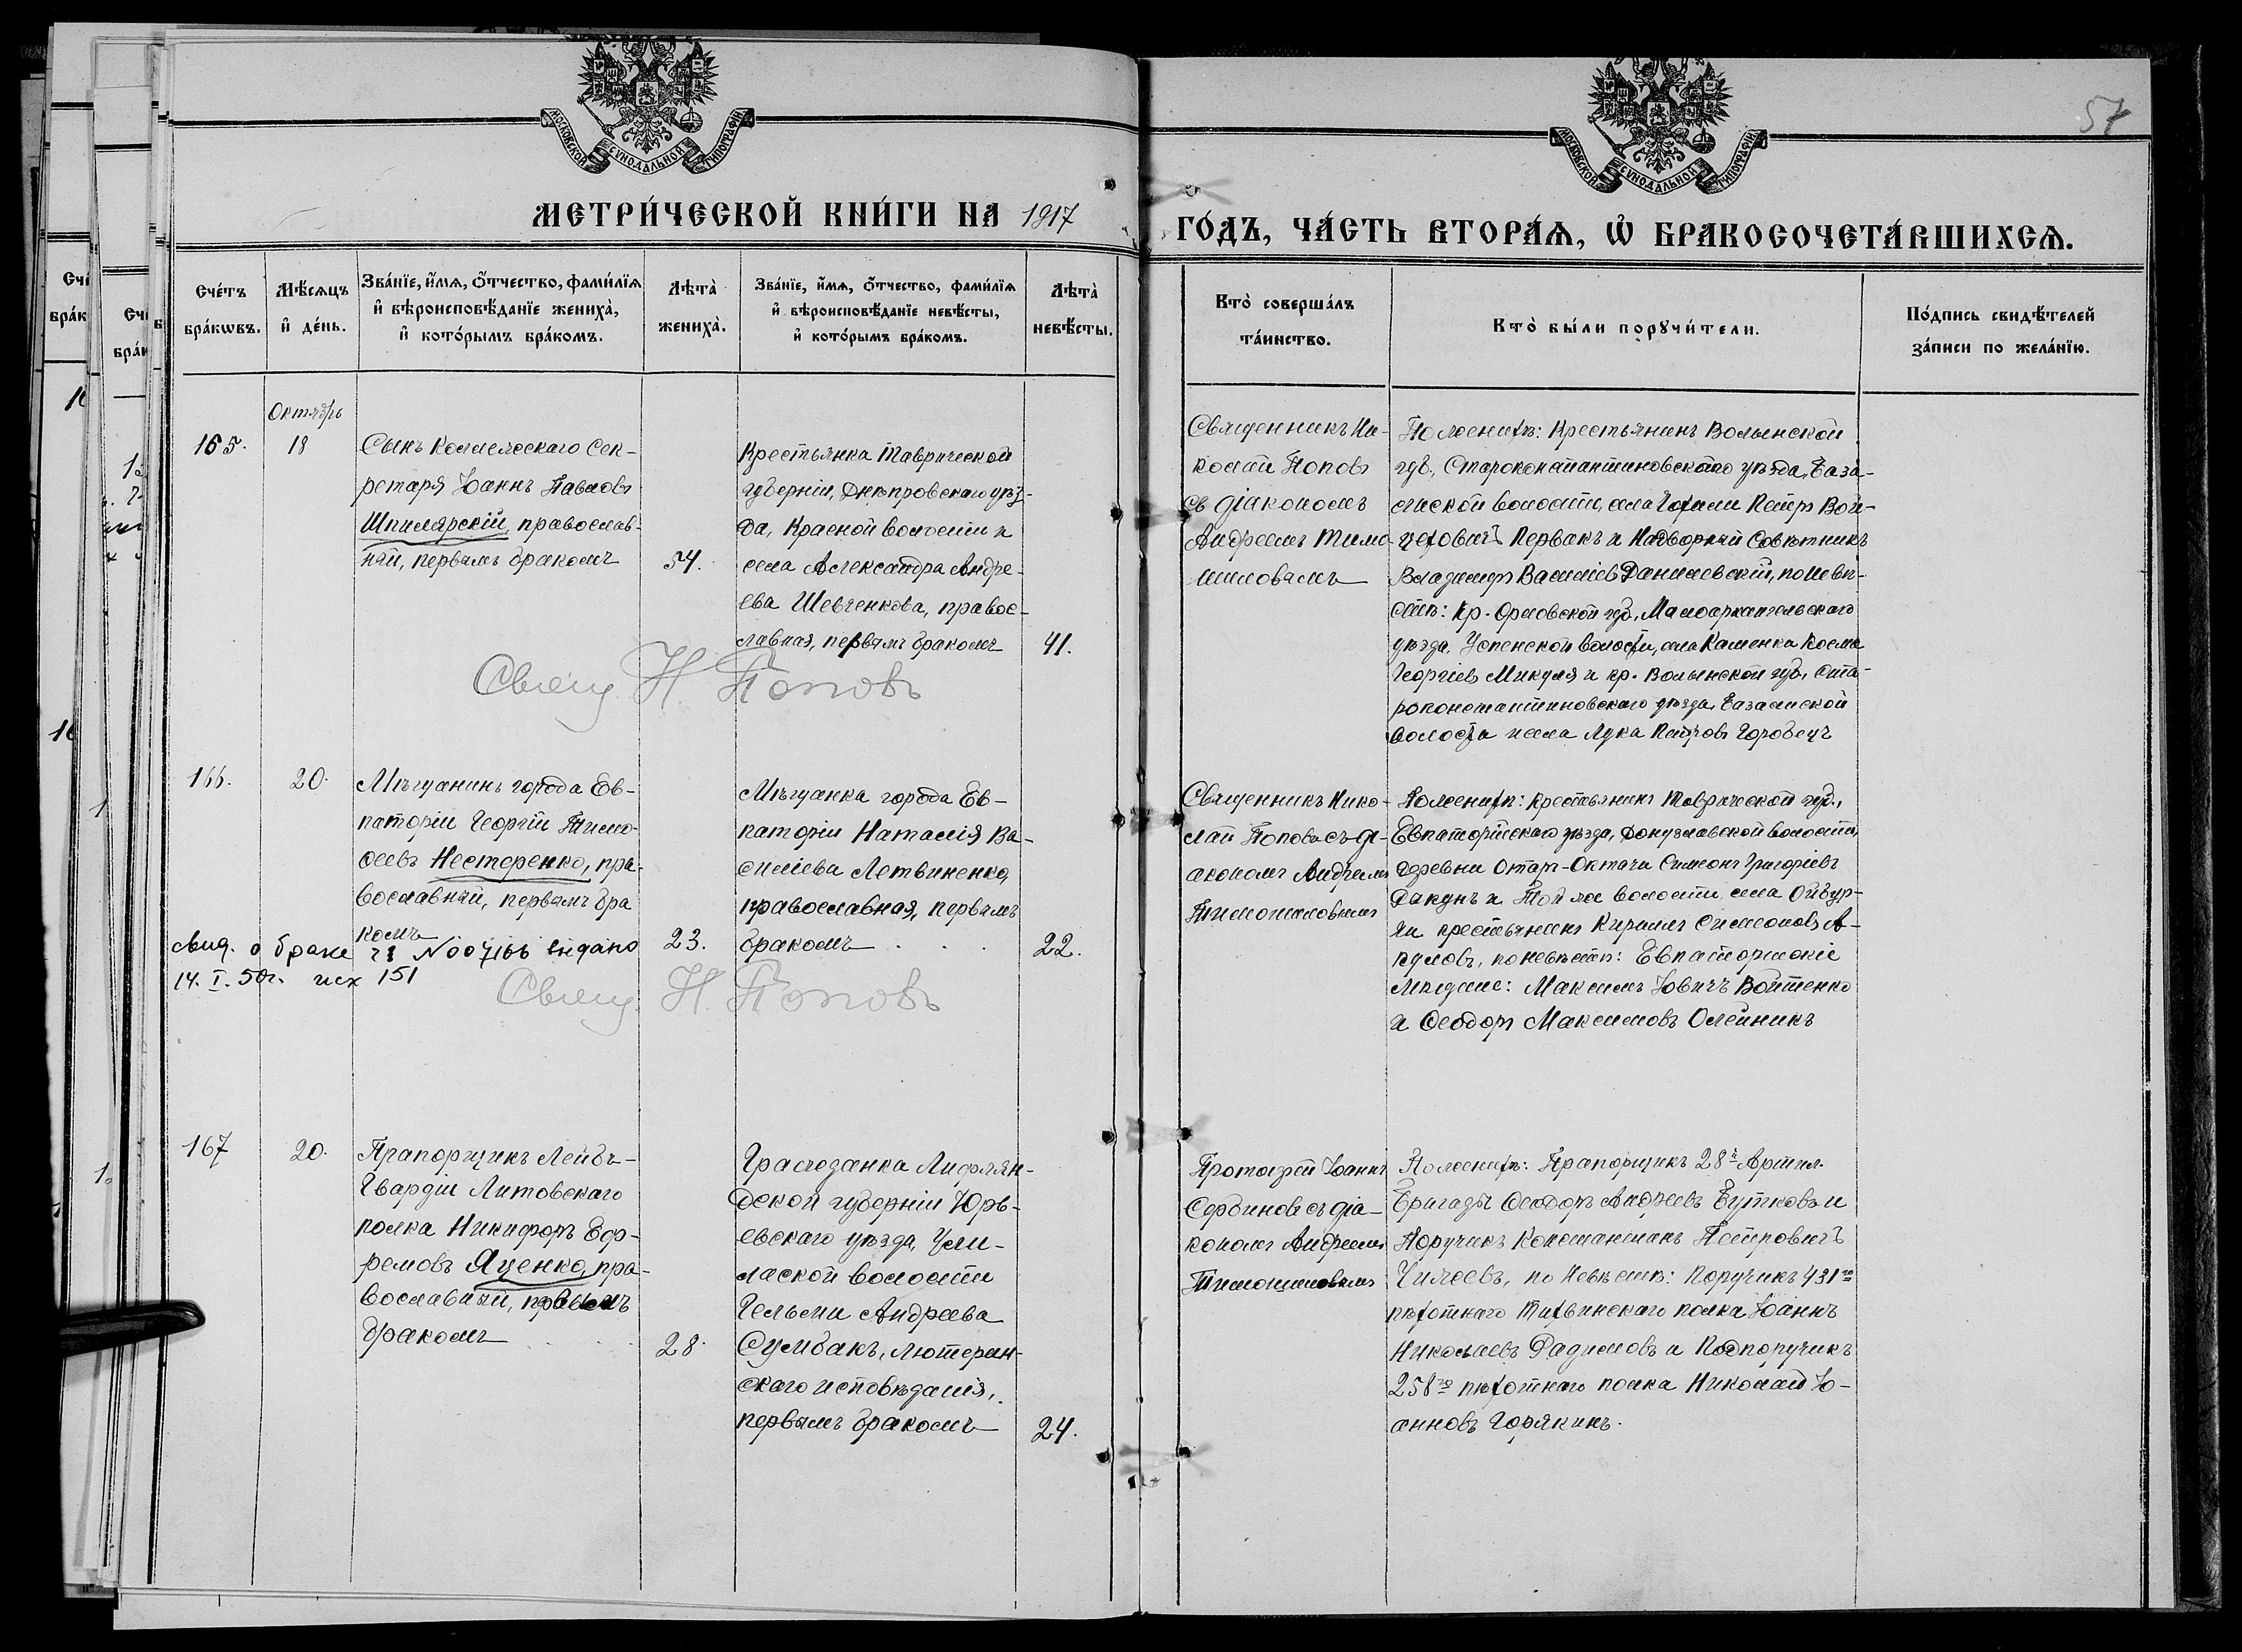 57
МОСКОВСКОЙ СУНОДАЛЬНОЙ ТИПОГРАФІИ
МОСКОВСКОЙ СУНОДАЛЬНОЙ ТИПОГРАФІИ
МЕТРИ́ЧЕСКОЙ КНИ́ГИ НА 1917
ГО́ДЪ, ЧА́СТЬ ВТОРА́Я, Ѡ БРАКОСОЧЕТА́ВШИХСЯ.
Сче́тъ
бра́кѡвъ.
Мѣ́сяцъ
и де́нь.
Зва́нїе, и́мя, о́тчество, фами́лїя
и вѣроисповѣ́данїе жениха̀,
и кото́рымъ бра́комъ.
Лѣта̀
жениха̀.
Зва́нїе, и́мя, о́тчество, фами́лїя
и вѣроисповѣ́данїе невѣ́сты,
и кото́рымъ бра́комъ.
Лѣта̀
невѣ́сты.
Кто̀ соверша́лъ
та́инство.
Кто̀ бы́ли порꙋчи́тели.
По́дпись свидѣ́телей
за́писи по жела́нїю.
165.
Октябрь
18
Сынъ Коллежскаго Сек-
ретаря Іоаннъ Павловъ
Шпилярскій, православ-
ный, первымъ бракомъ
54.
Крестьянка Таврической
губерніи, Днѣпровскаго уѣз-
да, Красной волости и
села Александра Андре-
ева Шевченкова, правос-
лавная, первымъ бракомъ
41.
Священникъ Ни-
колай Поповъ
съ діакономъ
Андреемъ Тимо-
шиловымъ
По женихѣ: Крестьянинъ Волынской
губ., Староконстантиновскаго уѣзда, База-
лійской волости, села Петръ Вой-
цеховичъ Первакъ и Надворный Совѣтникъ
Владиміръ Василіевъ Данилевскій, по невѣ-
стѣ: Кр. Орловской губ., Малоархангельскаго
уѣзда, Успенской волости, села Каменка Косма
Георгіевъ Микуля и кр. Волынской губ., Ста-
роконстантиновскаго уѣзда, Базалійской
волости и села Лука Петровъ Горобецъ
Свящ. Н. Поповъ
166.
20.
Мѣщанинъ города Ев-
паторіи Георгій Тимо-
ѳеевъ Нестеренко, пра-
вославный, первымъ бра
комъ
23.
Мѣщанка города Ев-
паторіи Наталія Ва-
силіева Летвиненко,
православная, первымъ
бракомъ
22.
Священникъ Нико-
лай Поповъ съ ді-
акономъ Андреемъ
Тимошиловымъ
По женихѣ: Крестьянинъ Таврической губ.,
Евпаторійскаго уѣзда, Донузлавской волости,
деревни Отаръ-Октачи Симеонъ Григоріевъ
Дакунъ и той же волости села Ойбур-
ли крестьянинъ Кириллъ Симеоновъ А-
куловъ, по невѣстѣ: Евпаторійскіе
Мѣщане: Максимъ Іовичъ Войтенко
и Ѳеодоръ Максимовъ Олейникъ
свид. о браке № 007166 выдано
14. I. 50г. исх 151
Свящ. Н. Поповъ
167
20.
Прапорщикъ Лейбъ-
Гвардіи Литовскаго
полка Никифоръ Еф-
ремовъ Яценко, пра-
вославный, первымъ
бракомъ
28.
Гражданка Лифлян-
дской губерніи Юрь-
евскаго уѣзда,
волости
Гельми Андреева
Сумбакъ, лютеран-
скаго исповѣданія,
первымъ бракомъ
24.
Протоіерей Іоаннъ
Сербиновъ съ діа-
кономъ Андреемъ
Тимошиловымъ
По женихѣ: Прапорщикъ 28й Артил.
Бригады Ѳеодоръ Андреевъ Бутковъ и
Поручикъ Константинъ Петровичъ
по Невѣстѣ: Поручикъ 431го
пѣхотнаго Тихвинскаго полка Іоаннъ
Николаевъ Радимовъ и Подпоручикъ
258го пѣхотнаго полка Николай Іо-
анновъ Горякинъ.